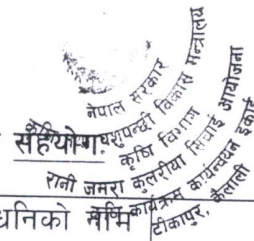 नेपाल सरकार
कृषि तथा पशुपन्छी विकास मन्त्रालय
कृषि विभाग
रानी जमरा कुलरीया सिंचाई आयोजना
कार्यक्रम कार्यन्वयन इकाई
टीकापुर, कैलाली
सहयोग
धनिको